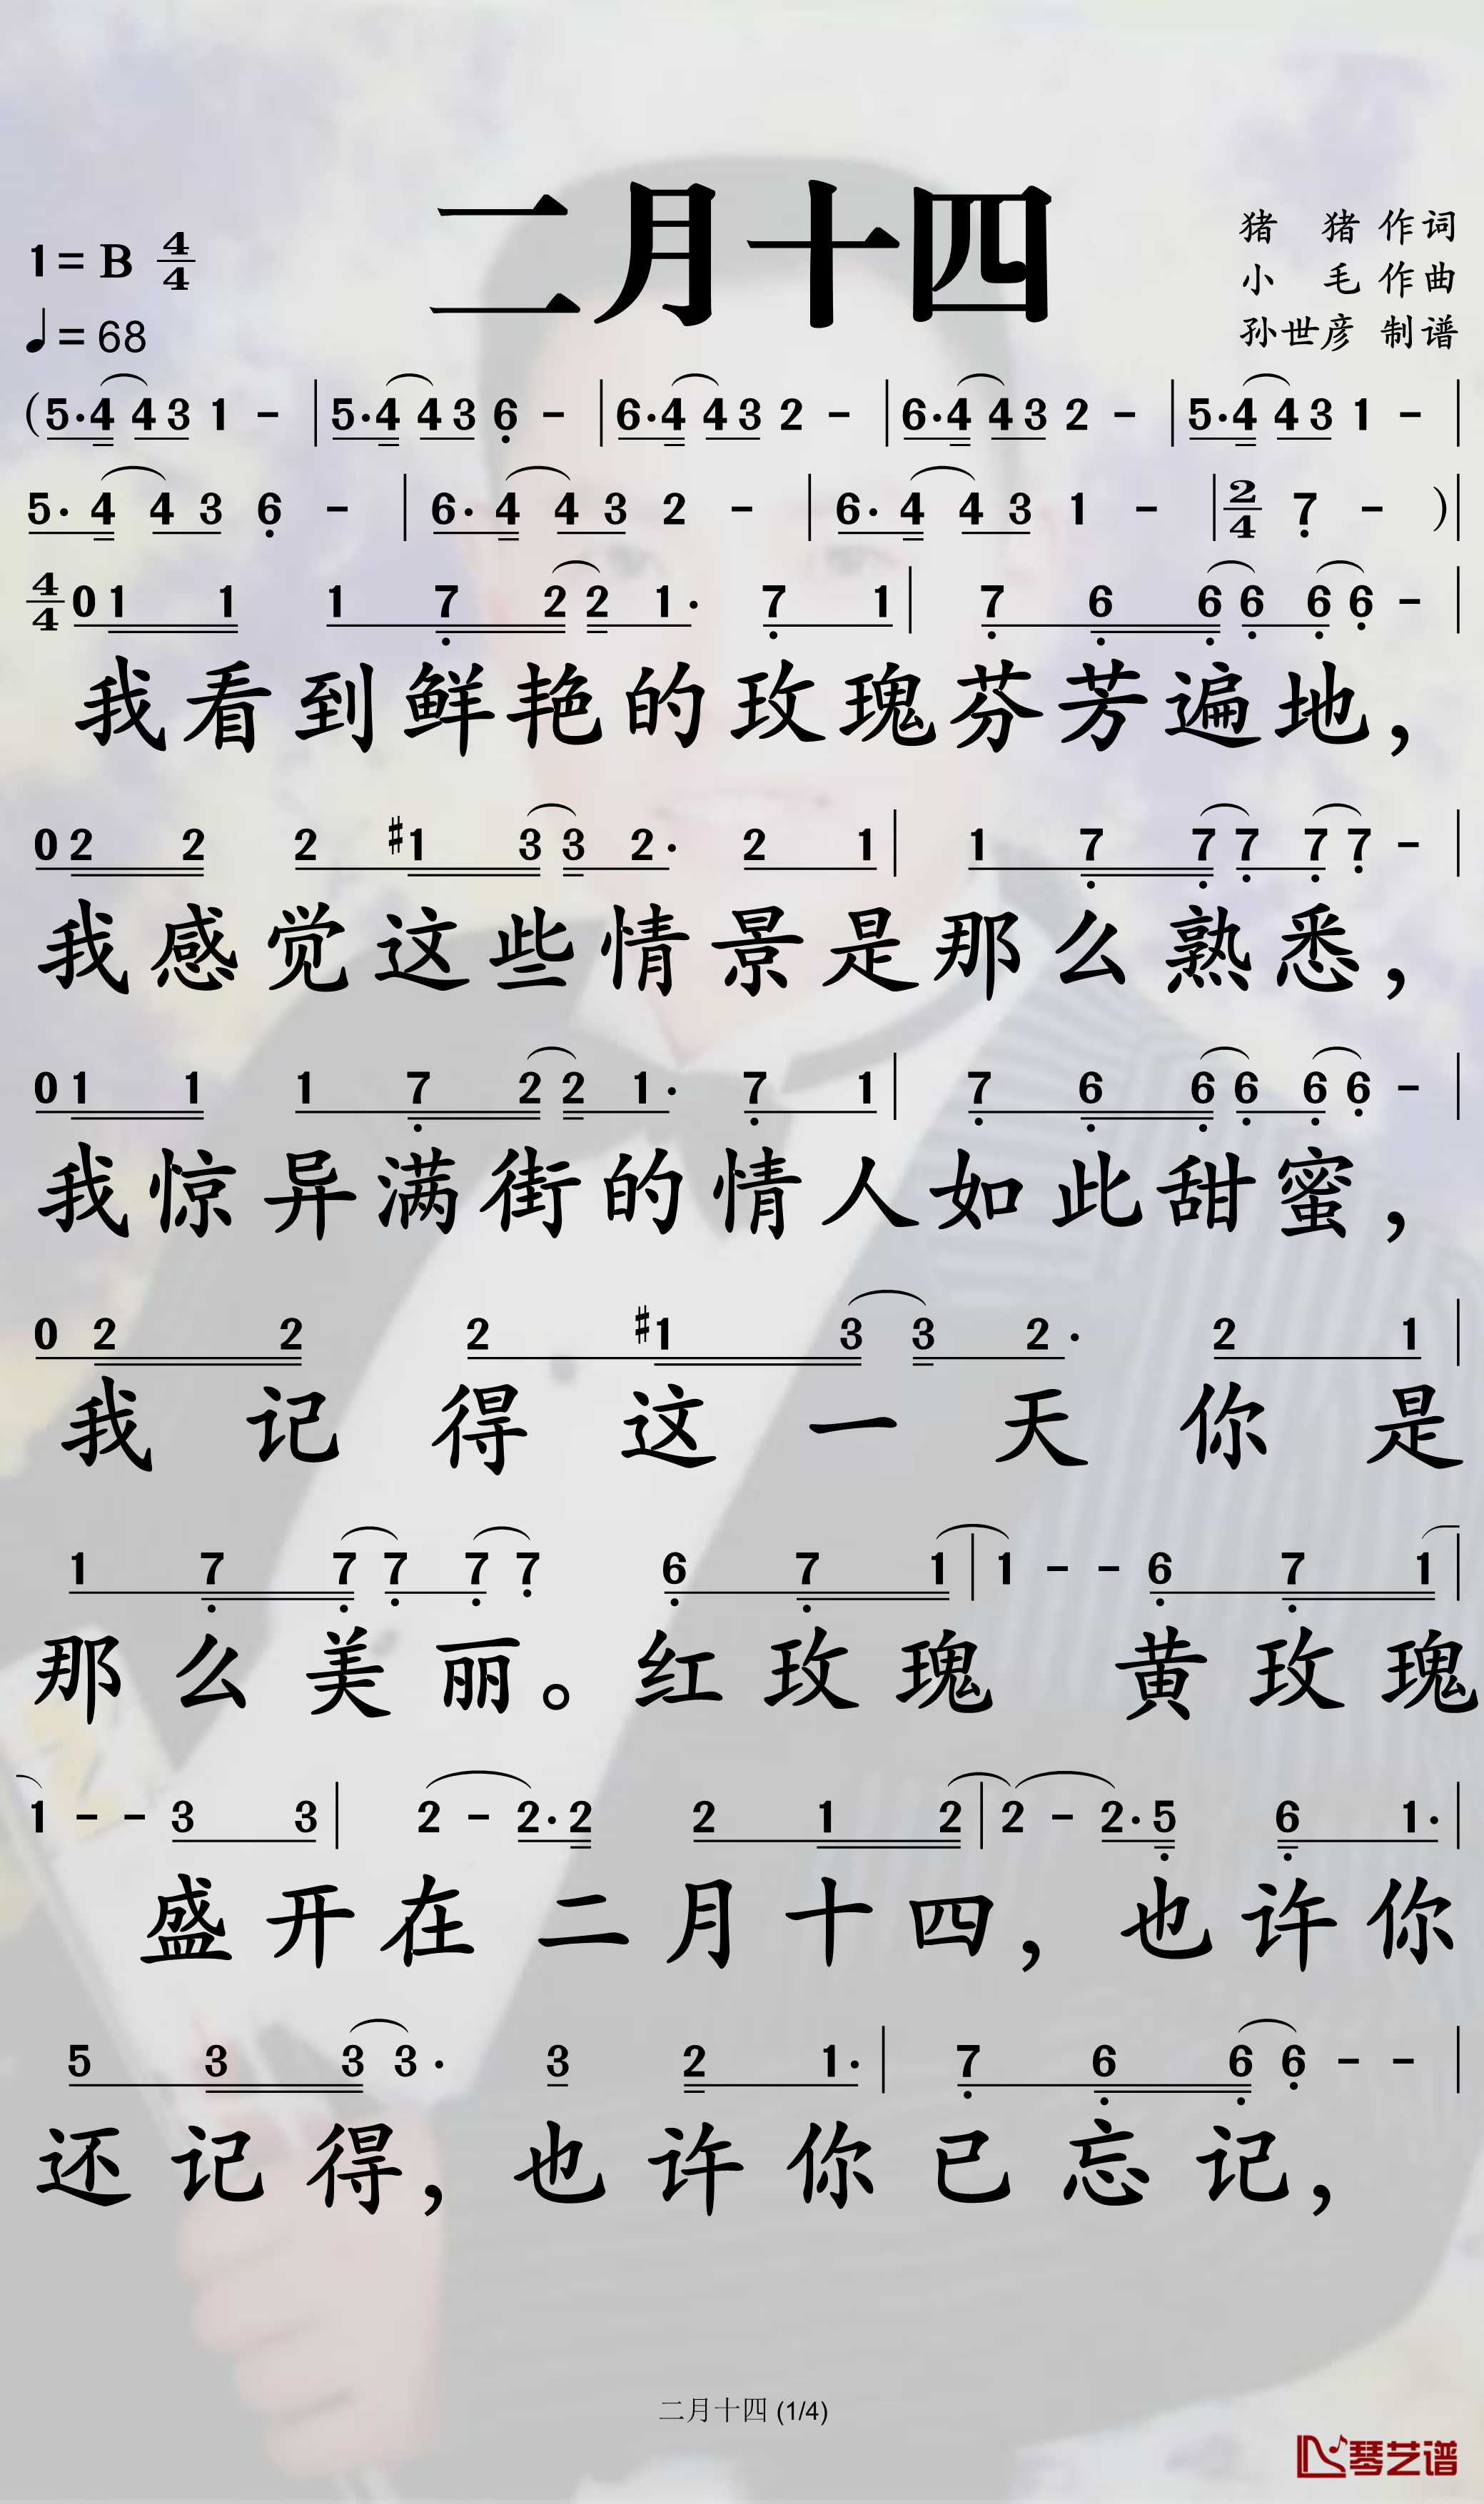 二月十四
1=B 4/4
♩=68
猪 猪 作词
小 毛 作曲
孙世彦 制谱
(5·4 4 3 1 - | 5·4 4 3 6 - | 6·4 4 3 2 - | 6·4 4 3 2 - | 5·4 4 3 1 - |
5· 4 4 3 6 - | 6· 4 4 3 2 - | 6· 4 4 3 1 - | 2/4 7 - )|
4/4 0 1 1 1 7 2 2 1· 7 1 | 7 6 6 6 6 6 - |
我看到鲜艳的玫瑰芬芳遍地，
0 2 2 2 #1 3 3 2· 2 1 | 1 7 7 7 7 7 - |
我感觉这些情景是那么熟悉，
0 1 1 1 7 2 2 1· 7 1 | 7 6 6 6 6 6 - |
我惊异满街的情人如此甜蜜，
0 2 2 2 #1 3 3 2· 2 1 |
我记得这一天你是
1 7 7 7 7 7 6 7 1 | 1 - - 6 7 1 |
那么美丽。红玫瑰 黄玫瑰
1 - - 3 3 | 2 - 2· 2 2 1 2 | 2 - 2· 5 6 1· |
盛开在二月十四，也许你
5 3 3 3· 3 2 1· | 7 6 6 6 - - |
还记得，也许你已忘记，
二月十四 (1/4)
琴艺谱